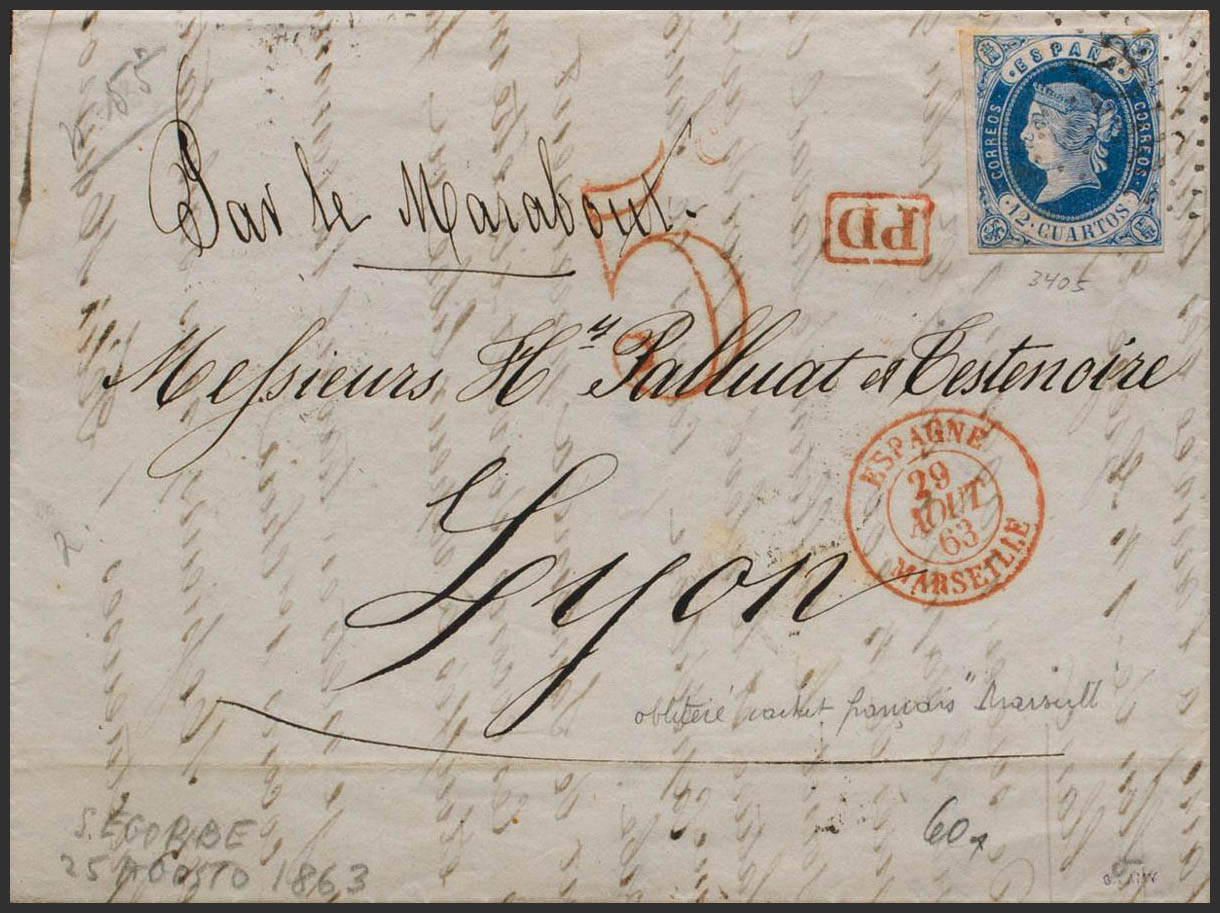 55
· ESPAÑA ·
CORREOS
CORREOS
12 · CUARTOS
Par le Marabout.
5
PD
3405
Messieurs Hy Palluat et Testenoire
ESPAGNE
29
AOUT
63
MARSEILLE
2
Lyon
oblitéré cachet français "Marseille"
60
SEGORBE
25 AGOSTO 1863